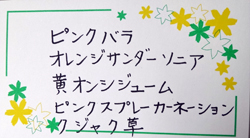 ピンクバラ
オレンジサンダーソニア
黄オンシジューム
ピンクスプレーカーネーション
クジャク草